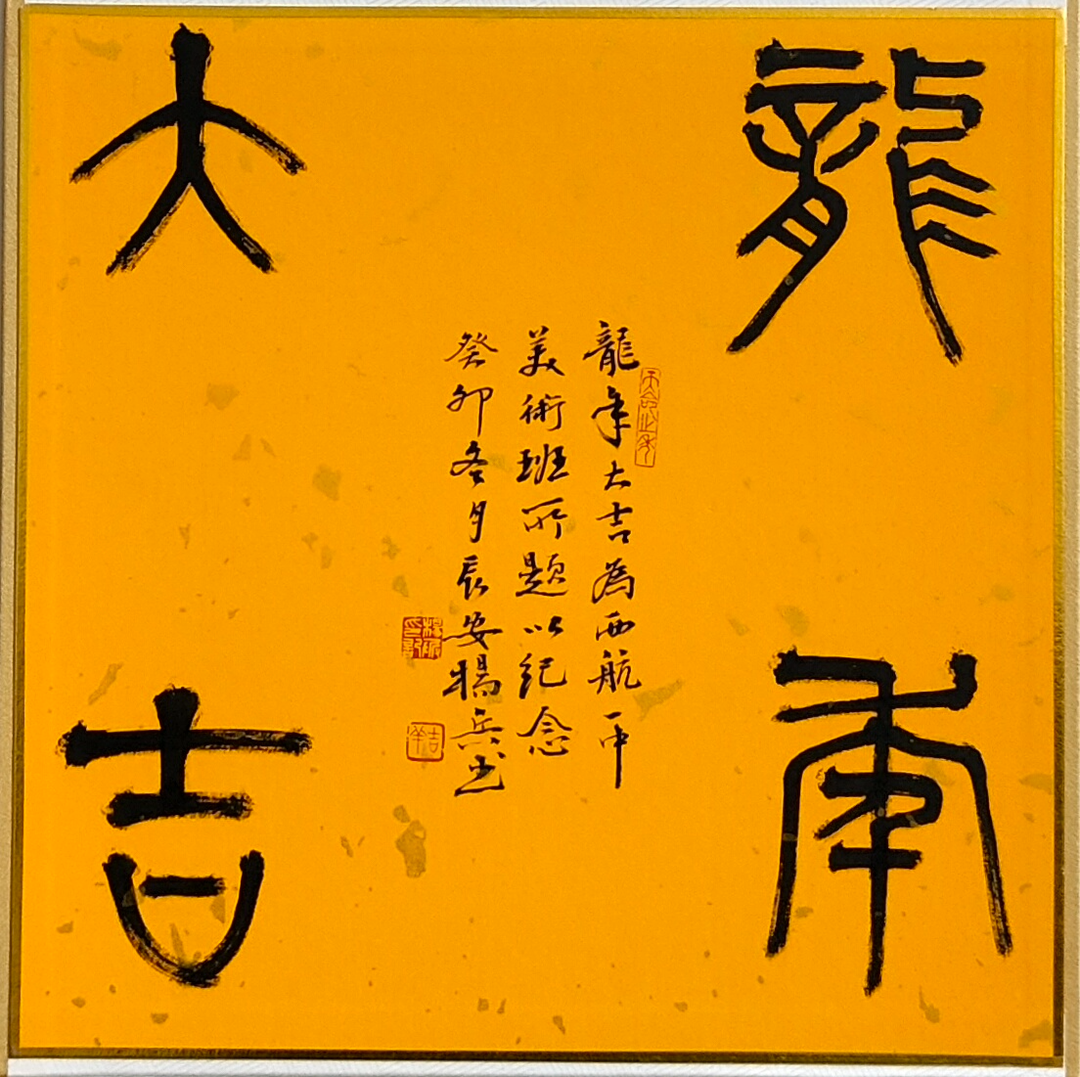 龍年
大吉
龍年大吉為西航一中
美術班所題以紀念
癸卯冬月長安楊兵书
天命之年
吉羊